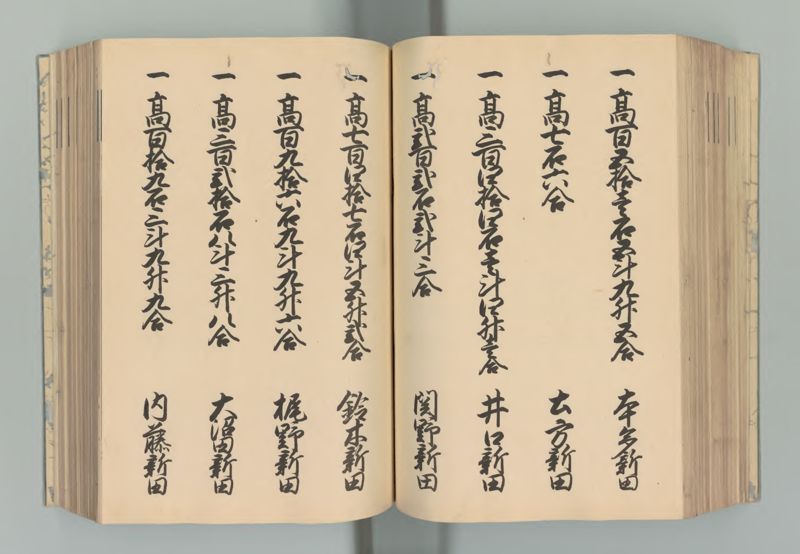 一 高百五拾壱石五斗九升五合 本多新田
一 高七石六合 土方新田
一 高三百四拾四石壱斗四升壱合 井口新田
一 高弐百弐石弐斗三合 関野新田
一 高七百四拾七石四斗五升弐合 鈴木新田
一 高百九拾六石九斗九升六合 梶野新田
一 高三百弐拾石八斗三升八合 大沼田新田
一 高百拾九石二斗九升九合 内藤新田